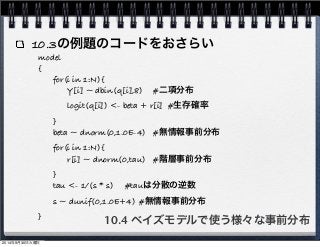 10.3の例題のコードをおさらい
model
{
for(i in 1:N){
Y[i] ~ dbin(q[i],8) #二項分布
logit(q[i]) <- beta + r[i] #生存確率
}
beta ~ dnorm(0,1.0E-4) #無情報事前分布
for(i in 1:N){
r[i] ~ dnorm(0,tau) #階層事前分布
}
tau <- 1/(s * s) #tauは分散の逆数
s ~ dunif(0,1.0E+4) #無情報事前分布
}
10.4 ベイズモデルで使う様々な事前分布